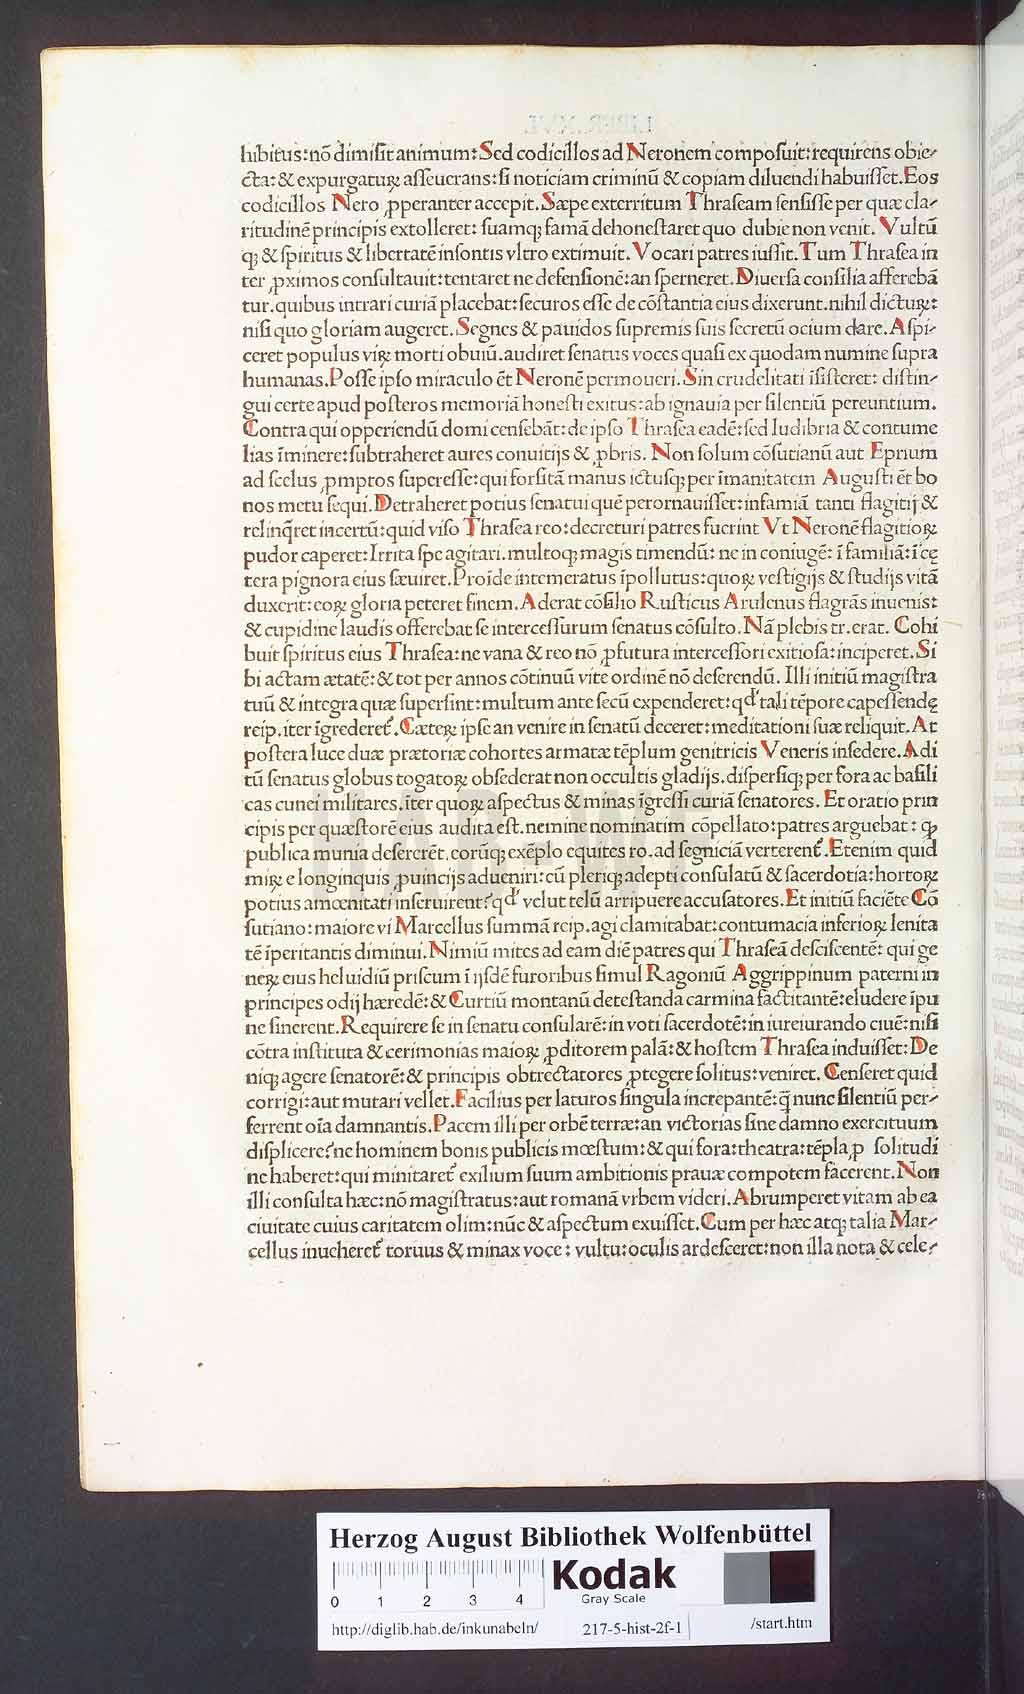 hibitus:nō dimiſit animum:Sed codicillos ad Neronem compoſuit:requirens obie-
cta:& expurgaturꝝ aſſeuerans:ſi noticiam criminū & copiam diluendi habuiſſet.Eos
codicillos Nero ꝓperanter accepit.Sæpe exterritum Thraſeam ſenſiſſe per quæ cla-
ritudinē principis extolleret: ſuamqꝫ famā dehoneſtaret quo dubie non venit. Vultū
qꝫ & ſpiritus & libertatē inſontis vltro extimuit. Vocari patres iuſſit.Tum Thraſea in
ter ꝓximos conſultauit:tentaret ne defenſionē:an ſperneret.Diuerſa conſilia afferebā
tur.quibus intrari curiā placebat:ſecuros eſſe de cōſtantia eius dixerunt.nihil dicturꝝ:
niſi quo gloriam augeret.Segnes & pauidos ſupremis ſuis ſecretū ocium dare.Aſpi-
ceret populus virꝝ morti obuiū.audiret ſenatus voces quaſi ex quodam numine ſupra
humanas.Poſſe ipſo miraculo ēt Neronē permoueri.Sin crudelitati īſiſteret: diſtin-
gui certe apud poſteros memoriā honeſti exitus:ab ignauia per ſilentiū pereuntium.
Contra qui opperiendū domi cenſebāt:de ipſo Thraſea eadē:ſed ludibria & contume
lias īminere:ſubtraheret aures conuitijs & ꝓbris. Non ſolum cōſutianū aut Eprium
ad ſcelus ꝓmptos ſupereſſe:qui forſitā manus ictuſqꝫ per īmanitatem Auguſti ēt bo
nos metu ſequi.Detraheret potius ſenatui quē perornauiſſet:infamiā tanti flagitij &
relinq̄ret incertū:quid viſo Thraſea reo:decreturi patres fuerint Vt Neronē flagitiorꝝ
pudor caperet:Irrita ſpe agitari.multoqꝫ magis timendū: ne in coniugē: ī familiā:ī cę
tera pignora eius ſæuiret.Proīde intemeratus īpollutus:quorꝝ veſtigijs & ſtudijs vitā
duxerit:eorꝝ gloria peteret finem.Aderat cōſilio Ruſticus Arulenus flagrās iuuenis:
& cupidine laudis offerebat ſe interceſſurum ſenatus cōſulto.Nā plebis tr.erat. Cohi
buit ſpiritus eius Thraſea:ne vana & reo nō ꝓfutura interceſſori exitioſa:inciperet.Si
bi actam ætatē:& tot per annos cōtinuū vite ordinē nō deſerendū. Illi initiū magiſtra
tuū & integra quæ ſuperſint:multum ante ſecū expenderet:qd' tali tēpore capeſſendę
reip.iter īgrederet᷑.Cæterꝝ ipſe an venire in ſenatū deceret:meditationi ſuæ reliquit.At
poſtera luce duæ prætoriæ cohortes armatæ tēplum genitricis Veneris inſedere.Adi
tū ſenatus globus togatorꝝ obſederat non occultis gladijs.diſperſiqꝫ per fora ac baſili
cas cunei militares.īter quorꝝ aſpectus & minas īgreſſi curiā ſenatores. Et oratio prin
cipis per quæſtorē eius audita eſt.nemine nominatim cōpellato:patres arguebat: ꝙ
publica munia deſererēt.eorūqꝫ exēplo equites ro.ad ſegniciā verterent᷑.Etenim quid
mirꝝ e longinquis ꝓuincijs adueniri:cū pleriqꝫ adepti conſulatū & ſacerdotia:hortorꝝ
potius amœnitati inſeruirent?qd' velut telū arripuere accuſatores.Et initiū faciēte Cō
ſutiano:maiore vi Marcellus ſummā reip.agi clamitabat:contumacia inferiorꝝ lenita
tē īperitantis diminui.Nimiū mites ad eam diē patres qui Thraſeā deſciſcentē: qui ge
nerꝝ eius heluidiū priſcum ī ijſdē furoribus ſimul Ragoniū Aggrippinum paterni in
principes odij hæredē:& Curtiū montanū deteſtanda carmina factitantē:eludere īpu
ne ſinerent.Requirere ſe in ſenatu conſularē:in voti ſacerdotē:in iureiurando ciuē:niſi
cōtra inſtituta & cerimonias maiorꝝ ꝓditorem palā:& hoſtem Thraſea induiſſet:De
niqꝫ agere ſenatorē:& principis obtrectatores ꝓtegere ſolitus:veniret. Cenſeret quid
corrigi:aut mutari vellet.Facilius per laturos ſingula increpantē:q̄ nunc ſilentiū per-
ferrent oīa damnantis.Pacem illi per orbē terræ:an victorias ſine damno exercituum
diſplicere?ne hominem bonis publicis mœſtum:& qui fora:theatra:tēpla ꝓ ſolitudi
ne haberet:qui minitaret᷑ exilium ſuum ambitionis prauæ compotem facerent.Non
illi conſulta hæc:nō magiſtratus:aut romanā vrbem videri.Abrumperet vitam ab ea
ciuitate cuius caritatem olim:nūc & aſpectum exuiſſet.Cum per hæc atqꝫ talia Mar-
cellus inueheret᷑ toruus & minax voce: vultu:oculis ardeſceret:non illa nota & cele-
HAB WF
Herzog August Bibliothek Wolfenbüttel
0 1 2 3 4
Kodak
Gray Scale
http://diglib.hab.de/inkunabeln/ 217-5-hist-2f-1 /start.htm